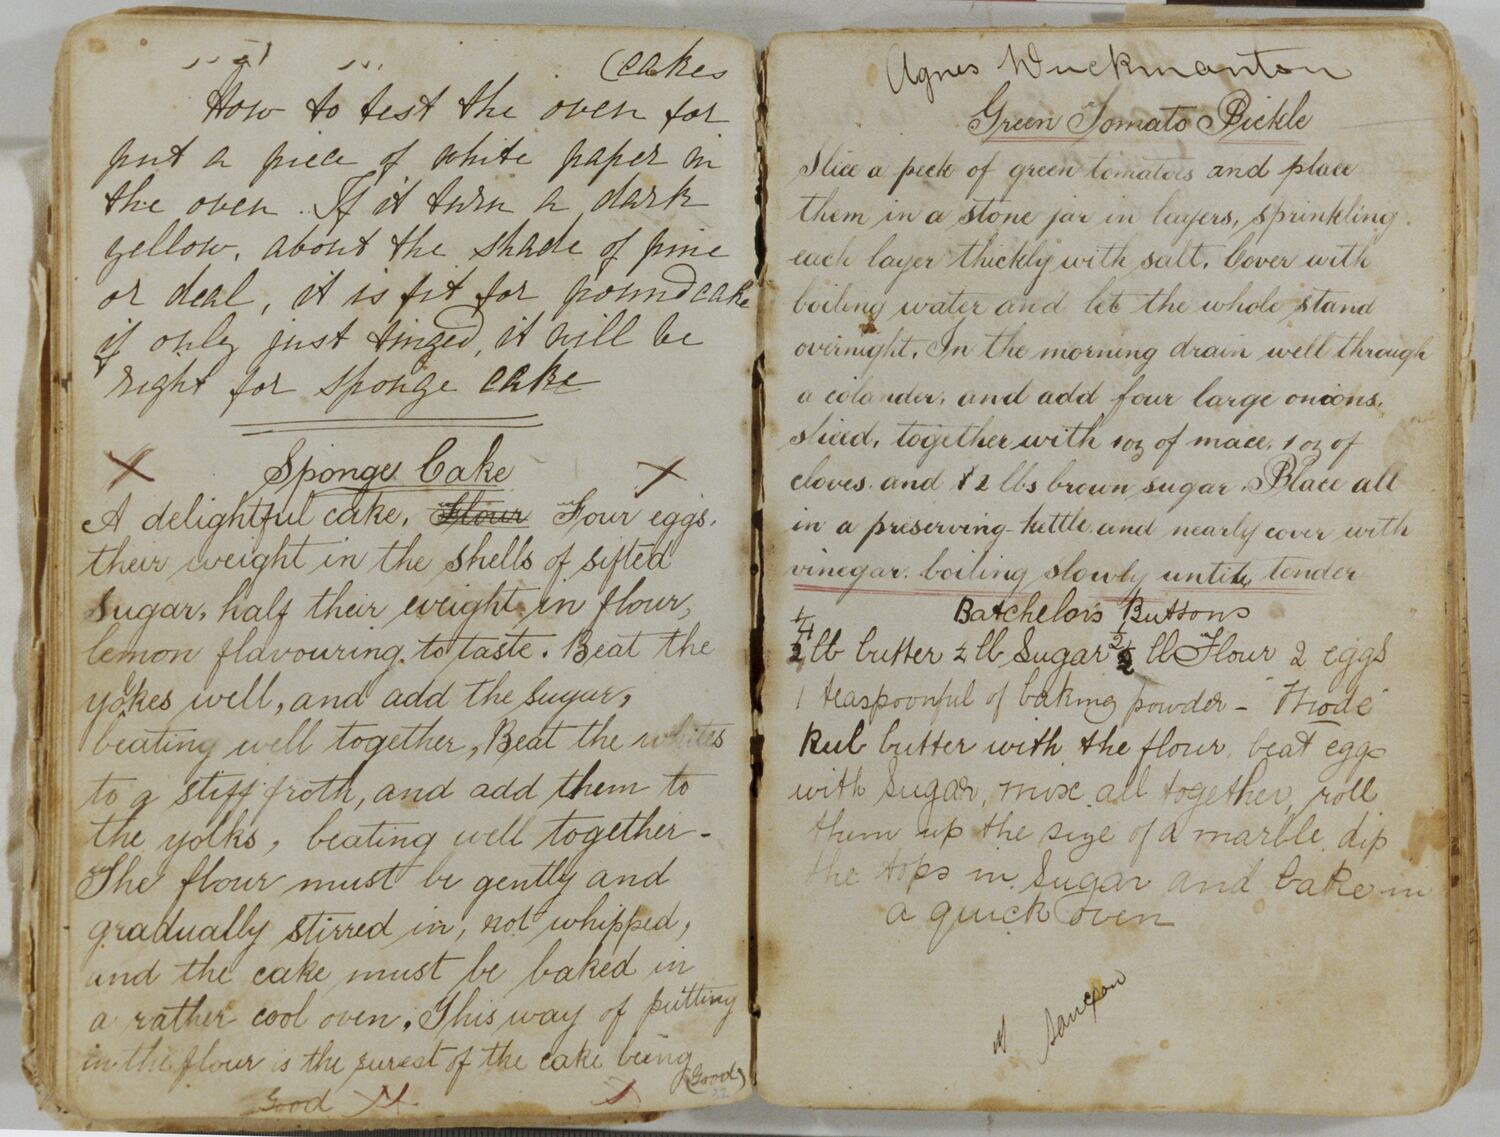 (cakes
How to test the oven for
put a piece of white paper in
the oven. If it turn a dark
yellow, about the shade of pine
or deal, it is fit for pound cake
if only just tinged, it will be
right for sponge cake
X Sponge Cake X
A delightful cake. Flour Four eggs.
their weight in the shells of sifted
Sugar, half their weight in flour,
lemon flavouring to taste. Beat the
yokes well, and add the sugar,
beating well together, Beat the whites
to a stiff froth, and add them to
the yolks, beating well together-
The flour must be gently and
gradually stirred in, not whipped,
and the cake must be baked in
a rather cool oven. This way of putting
in the flour is the surest of the cake being
(Good)
Good X X
32
Agnes Wuckmanton
Green Tomato Pickle
Slice a peck of green tomatoes and place
them in a stone jar in layers, sprinkling
each layer thickly with salt. Cover with
boiling water and let the whole stand
overnight. In the morning drain well through
a colander, and add four large onions.
sliced, together with 1oz of mace, 1 oz of
cloves and 2 lbs brown sugar. Place all
in a preserving-kettle and nearly cover with
vinegar. boiling slowly until tender
Batchelors Buttons
1/4
lb butter ½ lb Sugar ½ lb Flour 2 eggs
1 teaspoonful of baking powder - "Mode"
Rub butter with the flour, beat eggs
with Sugar, mix all together, roll
them up the size of a marble, dip
the tops in Sugar and bake in
a quick oven